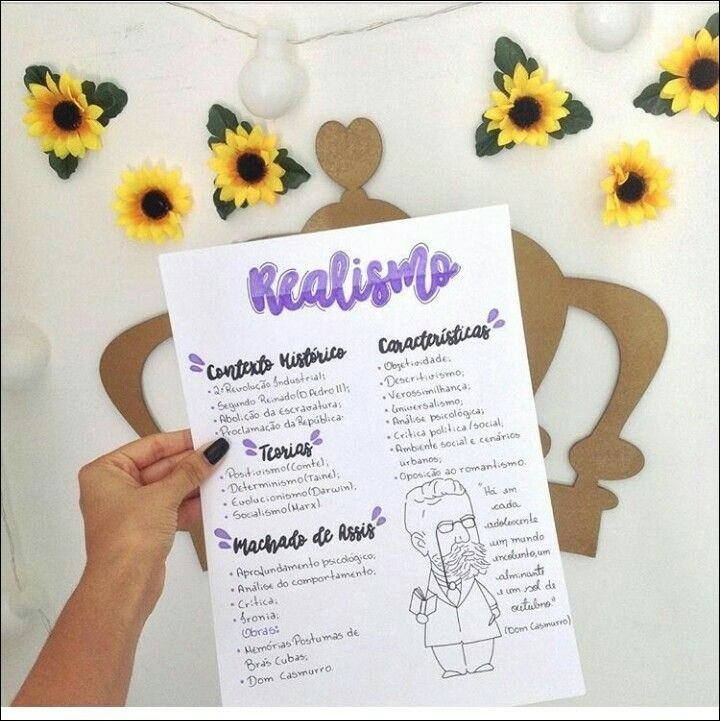 Realismo
Contexto Histórico
• 2ª Revolução Industrial;
• Segundo Reinado (D. Pedro II);
• Abolição da escravatura;
• Proclamação da República.
Teorias
• Positivismo (Comte);
• Determinismo (Taine);
• Evolucionismo (Darwin);
• Socialismo (Marx).
Machado de Assis
• Aprofundamento psicológico;
• Análise do comportamento;
• Crítica;
• Ironia;
Obras:
• Memórias Postumas de
Brás Cubas;
• Dom Casmurro.
Características
• Objetividade;
• Descritivismo;
• Verossimilhança;
• Universalismo;
• Análise psicológica;
• Crítica política/social;
• Ambiente social e cenários
urbanos;
• Oposição ao romantismo.
"Há em
cada
adolescente
um mundo
encoberto, um
alminante
e um sol de
outubro"
(Dom Casmurro)